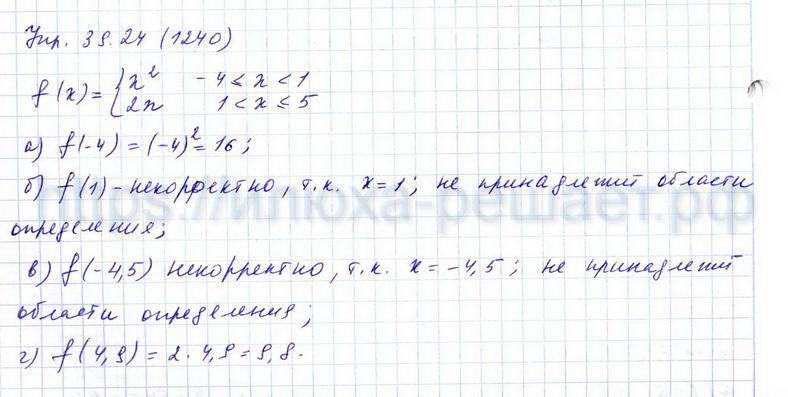 Упр. 39.24 (1240)
f(x) = { x² -4 ≤ x < 1
2x 1 < x ≤ 5
а) f(-4) = (-4)² = 16;
б) f(1) - некорректно, т.к. x=1; не принадлежит области
https://илюха-решает.рф
определения;
в) f(-4,5) некорректно, т.к. x = -4,5; не принадлежит
области определения;
г) f(4,9) = 2 · 4,9 = 9,8.